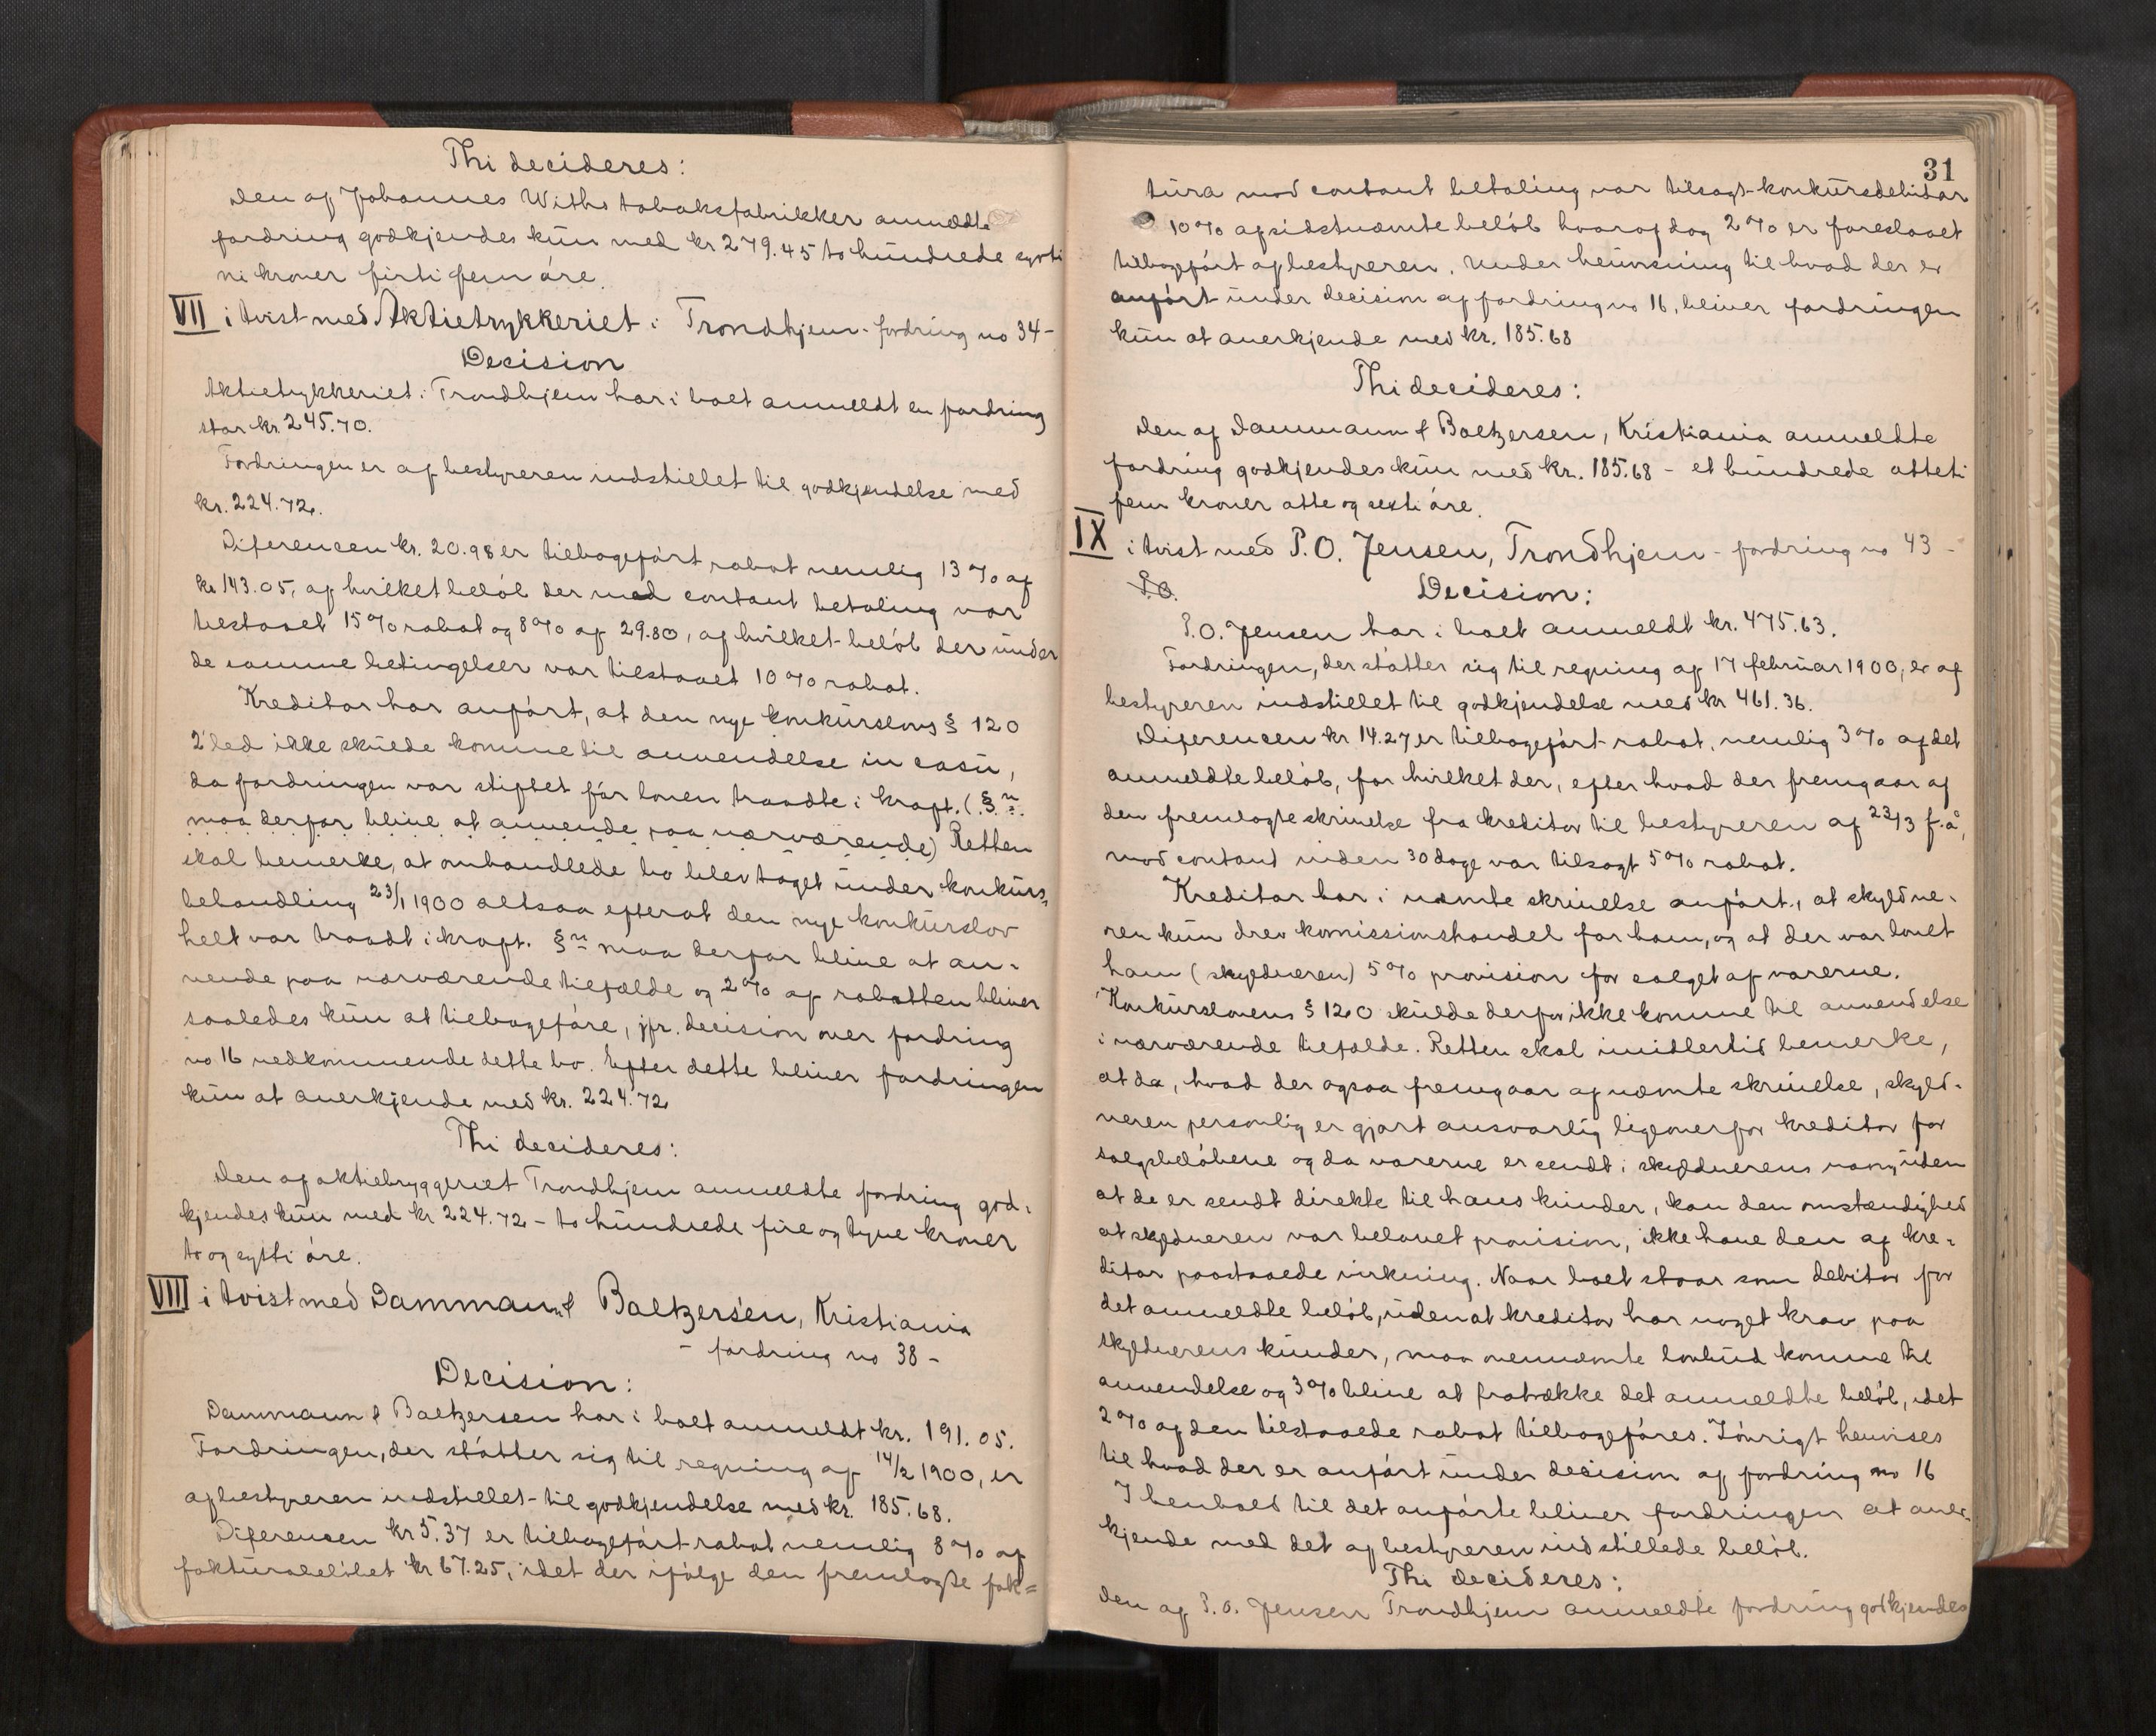 Thi decideres:
Den af Johannes Withs tobaksfabrikker anmeldte
fordring godkjendes kun med kr 279.45 to hundrede sytti
ni kroner firti fem øre.
VII i tvist med Aktietrykkeriet i Trondhjem - fordring no 34 -
Decision
Aktietrykkeriet i Trondhjem har i boet anmeldt en fordring
stor kr. 245.70.
Fordringen er af bestyreren indstillet til godkjendelse med
kr. 224.72.
Diferencen kr. 20.98 er tilbageført rabat nemlig 13 % af
kr 143.05, af hvilket beløb der mod contant betaling var
tilstaaet 15 % rabat og 8 % af 29.80, af hvilket beløb der under
de samme betingelser var tilstaaet 10 % rabat.
Kreditor har anført, at den nye konkurslovs § 120
2' led ikke skulde komme til anvendelse in casu,
da fordringen var stiftet før loven traadte i kraft. (§ n
maa derfor blive at anvende paa nærværende) Retten
skal bemerke, at omhandlede bo blev taget under konkurs-
behandling 23/1 1900 altsaa efterat den nye konkurslov
helt var traadt i kraft. § n maa derfor blive at an-
vende paa nærværende tilfælde og 2 % af rabatten bliver
saaledes kun at tilbageføre, jfr. decision over fordring
no 16 vedkommende dette bo. Efter dette bliver fordringen
kun at anerkjende med kr. 224.72
Thi decideres:
Den af aktiebryggeriet Trondhjem anmeldte fordring god-
kjendes kun med kr 224.72 - to hundrede fire og tyve kroner
to og sytti øre.
VIII i tvist med Dammann & Baltzersen, Kristiania
- fordring no 38 -
Decision:
Dammann & Baltzersen har i boet anmeldt kr. 191.05.
Fordringen, der støtter sig til regning af 14/2 1900, er
af bestyreren indstillet til godkjendelse med kr. 185.68.
Diferensen kr 5.37 er tilbageført rabat nemlig 8 % af
fakturabeløbet kr 67.25, idet der ifølge den fremlagte fak=
31
tura mod contant betaling var tilsagt konkursdebitor
10 % af sidstnæmte beløb hvoraf dog 2 % er foreslaaet
tilbageført af bestyreren. Under henvisning til hvad der er
anført under decision af fordring no 16, bliver fordringen
kun at anerkjende med kr. 185.68
Thi decideres:
Den af Dammann & Baltzersen, Kristiania anmeldte
fordring godkjendes kun med kr. 185.68 - et hundrede otteti
fem kroner otte og seksti øre.
IX i tvist med P.O. Jensen, Trondhjem - fordring no 43 -
P.O.
Decision:
P.O. Jensen har i boet anmeldt kr. 475.63.
Fordringen, der støtter sig til regning af 17 februar 1900, er af
bestyreren indstillet til godkjendelse med kr 461.36.
Diferencen kr 14.27 er tilbageført rabat, nemlig 3 % af det
anmeldte beløb, for hvilket der, efter hvad der fremgaar af
den fremlagte skrivelse fra kreditor til bestyreren af 23/3 f.a,
mod contant inden 30 dage var tilsagt 5 % rabat.
Kreditor har i næmte skrivelse anført, at skyldne-
ren kun drev komissionshandel for ham, og at der var lovet
ham (skyldneren) 5 % provision for salget af varerne.
Konkurslovens § 120 skulde derfor ikke komme til anvendelse
i nærværende tilfælde. Retten skal imidlertid bemerke,
at da, hvad der ogsaa fremgaar af næmte skrivelse, skyld-
neren personlig er gjort ansvarlig ligeoverfor kreditor for
salgsbeløbene og da varerne er sendt i skyldnerens navn, uden
at de er sendt direkte til hans kunder, kan den omstændighed
at skyldneren var belovet provision, ikke have den af kre-
ditor paastaaede virkning. Naar boet staar som debitor for
det anmeldte beløb, uden at kreditor har noget krav paa
skyldnerens kunder, maa ovennæmte lovbud komme til
anvendelse og 3 % blive at fratrække det anmeldte beløb, idet
2 % af den tilstaaede rabat tilbageføres. Iøvrigt henvises
til hvad der er anført under decision af fordring no 16
I henhold til det anførte bliver fordringen at aner-
kjende med det af bestyreren indstillede beløb.
Thi decideres:
Den af P.O. Jensen Trondhjem anmeldte fordring godkjendes